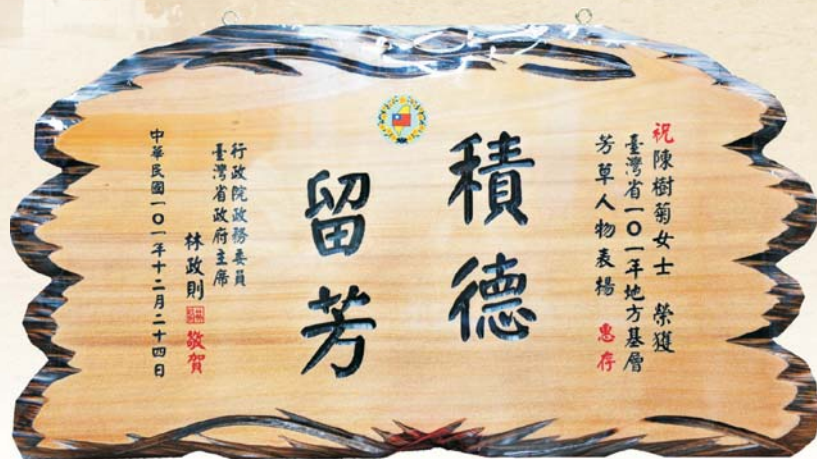 祝陳樹菊女士　榮獲
臺灣省一〇一年地方基層
芳草人物表揚　惠存
積德
留芳
行政院政務委員
臺灣省政府主席
林政則　敬賀
中華民國一〇一年十二月二十四日